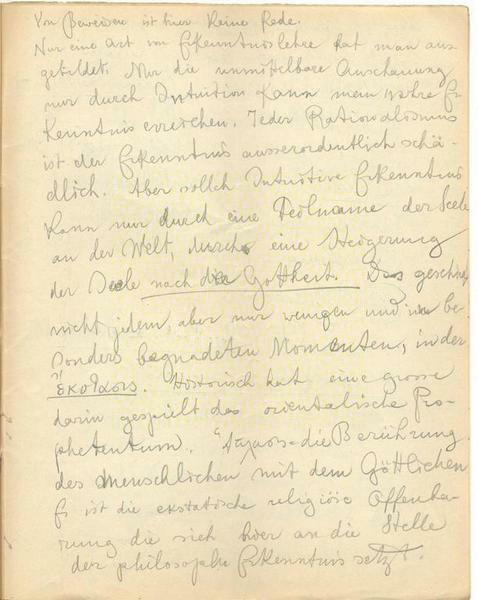 Von Beweisen ist hier keine Rede.
Nur eine Art von Erkenntnislehre hat man aus-
gebildet. Nur die unmittelbare Anschauung
nur durch Intuition kann man wahre Er-
kenntnis erreichen. Jeder Rationalismus
ist der Erkenntnis ausserordentlich schä-
dlich. Aber solch Intuitive Erkenntnis
kann nur durch eine Teilname der Seele
an der Welt, durch eine Steigerung
der Seele nach der Gottheit. Das geschieht
nicht jedem, aber nur wenigen und in be-
sonders begnadeten Momenten, in der
ἔκστασις. Historisch hat eine grosse
darin gespielt das orientalische Pro-
phetentum. die Berührung
des menschlichen mit dem Göttlichen
Es ist die ekstatische religiöse Offenba-
rung die sich hier an die Stelle
der philosoph Erkenntnis setzt.